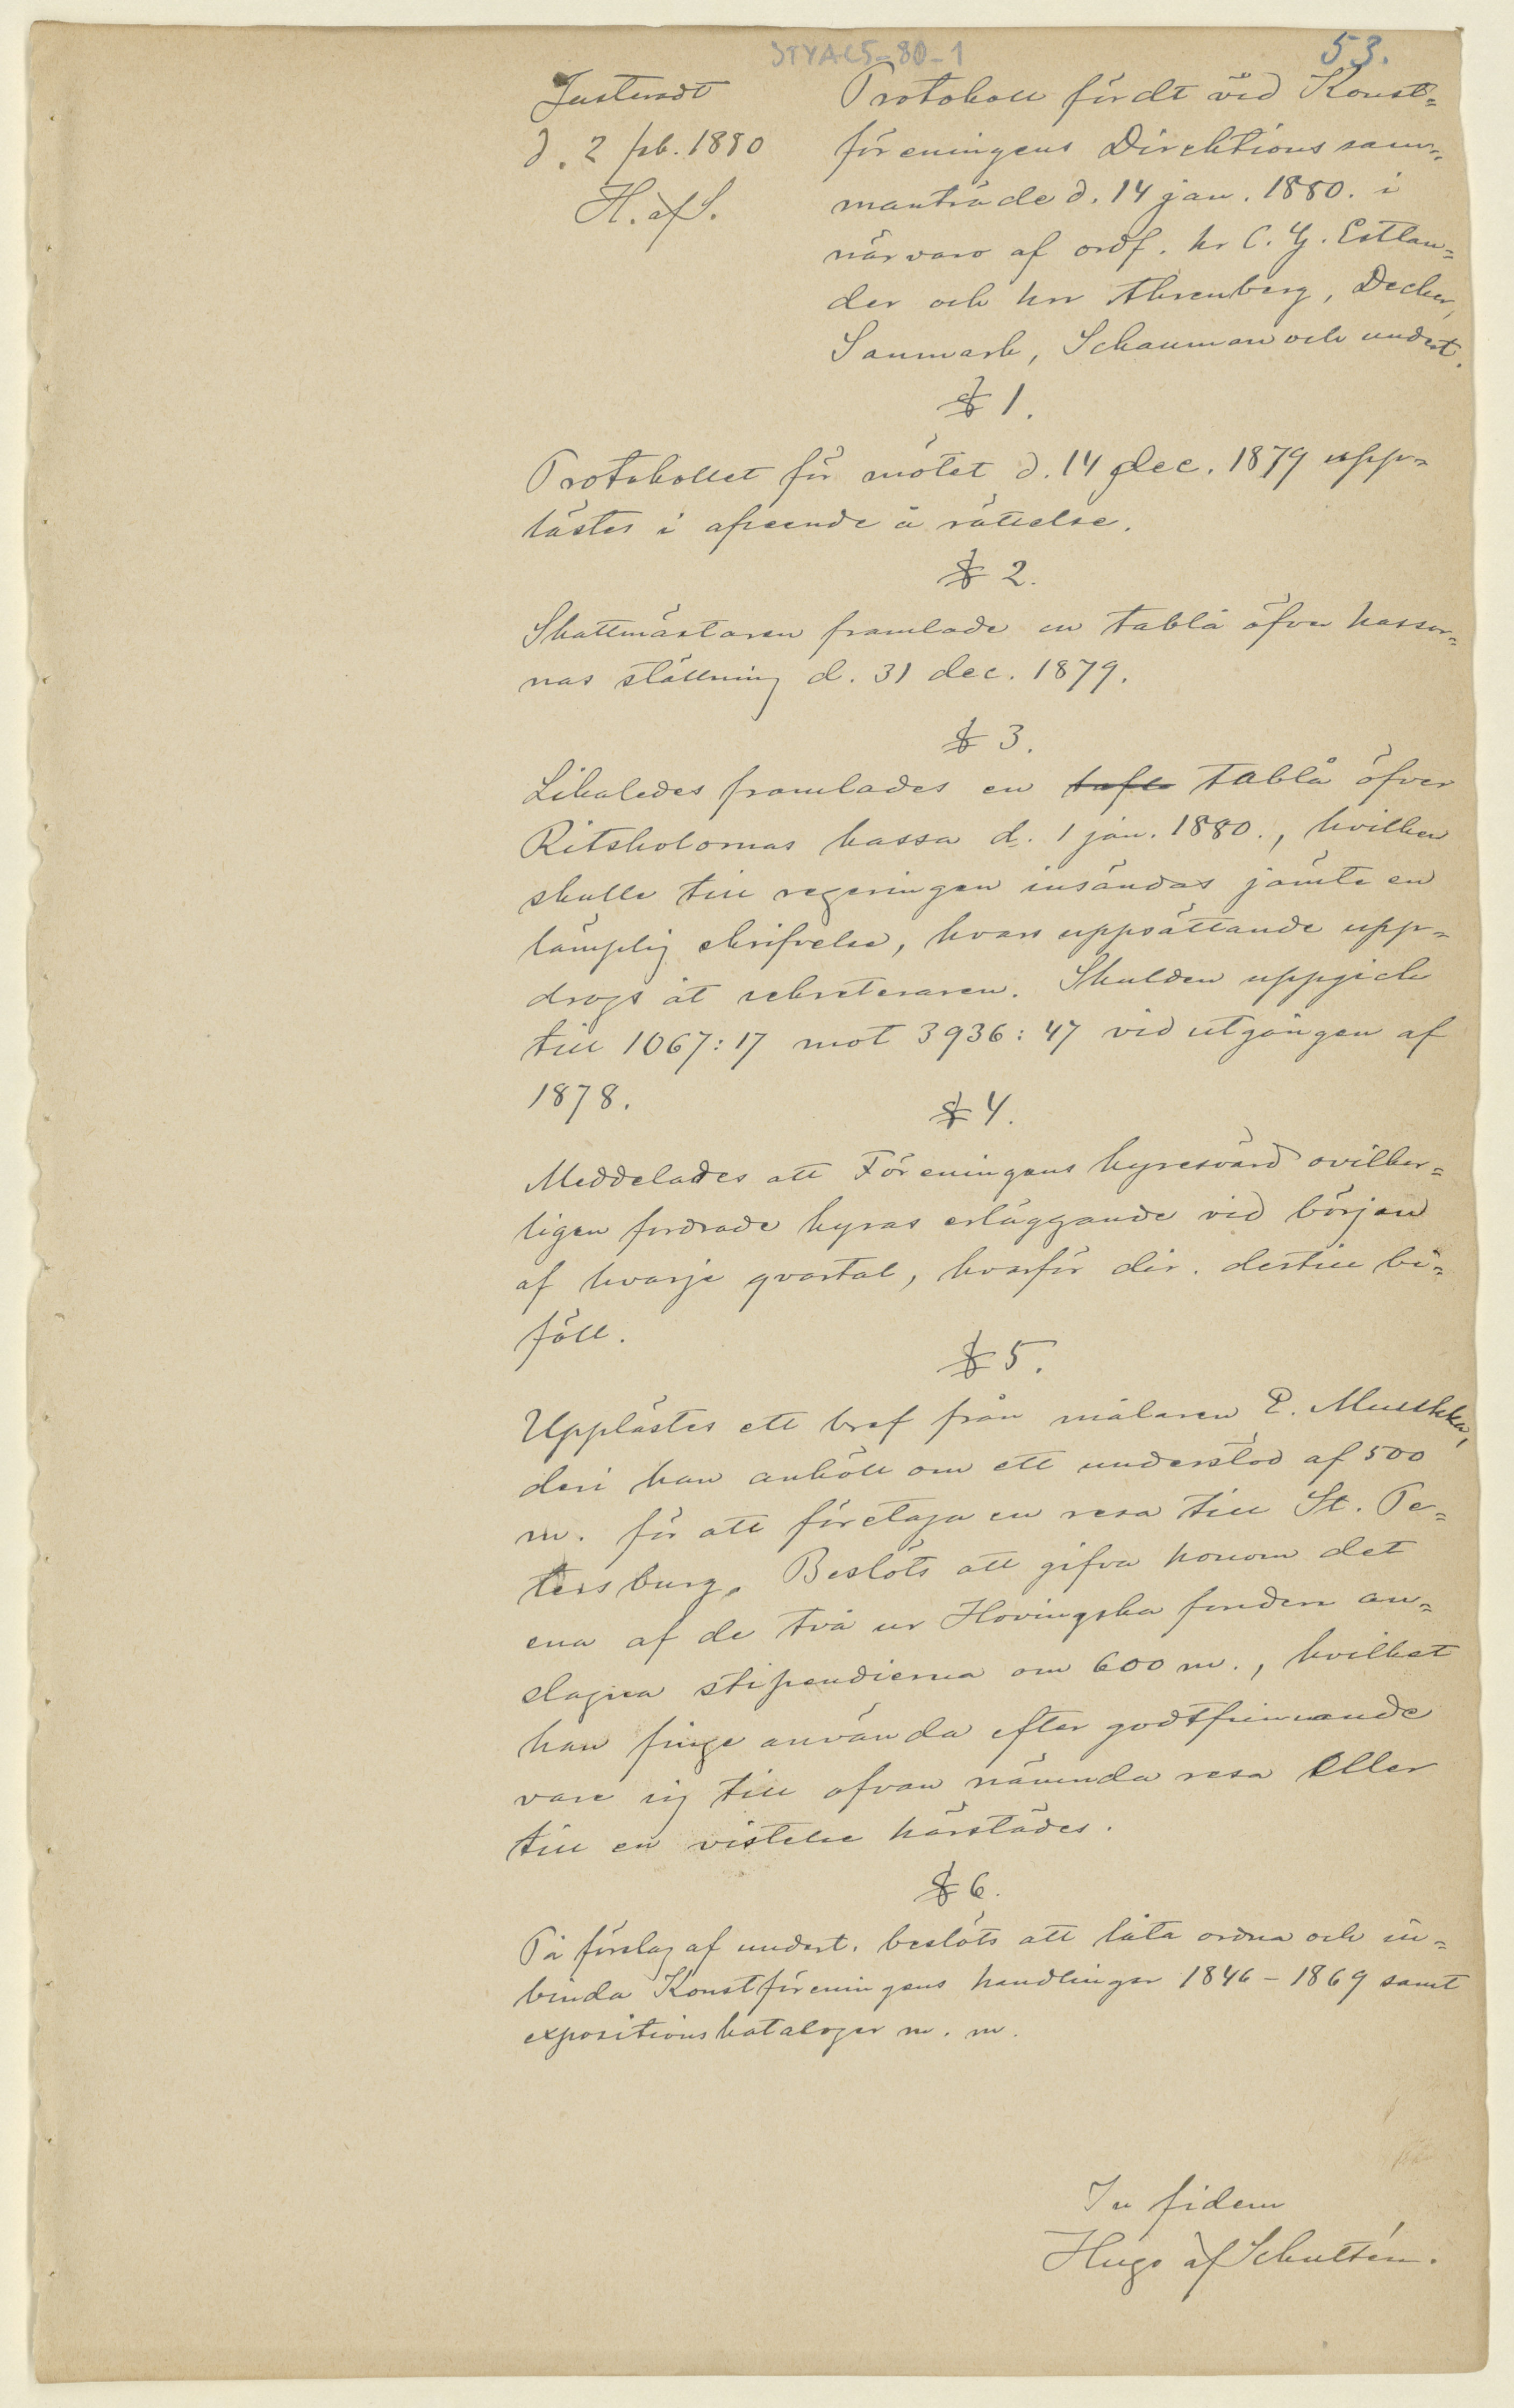 STYAL5-80-1
53.
Justeradt
d. 2 feb. 1880
H. af S.
Protokoll fördt vid Konst=
föreningens Direktions sam=
manträde d. 14 jan. 1880. i
närvaro af ordf. hr C. G. Estlan=
der och hrr Ahrenberg, Decker,
Sanmark, Schauman och undert.
§ 1.
Protokollet för mötet d. 14 dec. 1879 upp=
lästes i afseende å rättelse.
§ 2.
Skattmästaren framlade en tablå öfver kassor=
nas ställning d. 31 dec. 1879.
§ 3.
Likaledes framlades en tafla tablå öfver
Ritskolornas kassa d. 1 jan. 1880., hvilken
skulle till regeringen insändas jämte en
lämplig skrifvelse, hvars uppsättande upp=
drogs åt sekreteraren. Skulden uppgick
till 1067:17 mot 3936:47 vid utgången af
1878.
§ 4.
Meddelades att Föreningens hyresvärd ovilkor=
ligen fordrade hyras erläggande vid början
af hvarje qvartal, hvarför dir. dertill bi=
föll.
§ 5.
Upplästes ett bref från målaren E. Muukka,
deri han anhöll om ett understöd af 500
m. för att företaga en resa till St. Pe=
tersburg. Beslöts att gifva honom det
ena af de två ur Hovingska fonden an=
slagna stipendierna om 600 m., hvilket
han finge använda efter godtfinnande
vare sig till ofvan nämnda resa eller
till en vistelse härstädes.
§ 6.
På förslag af undert. beslöts att låta ordna och in=
binda Konstföreningens handlingar 1846-1869 samt
expositionskataloger m. m.
In fidem
Hugo af Schultén.